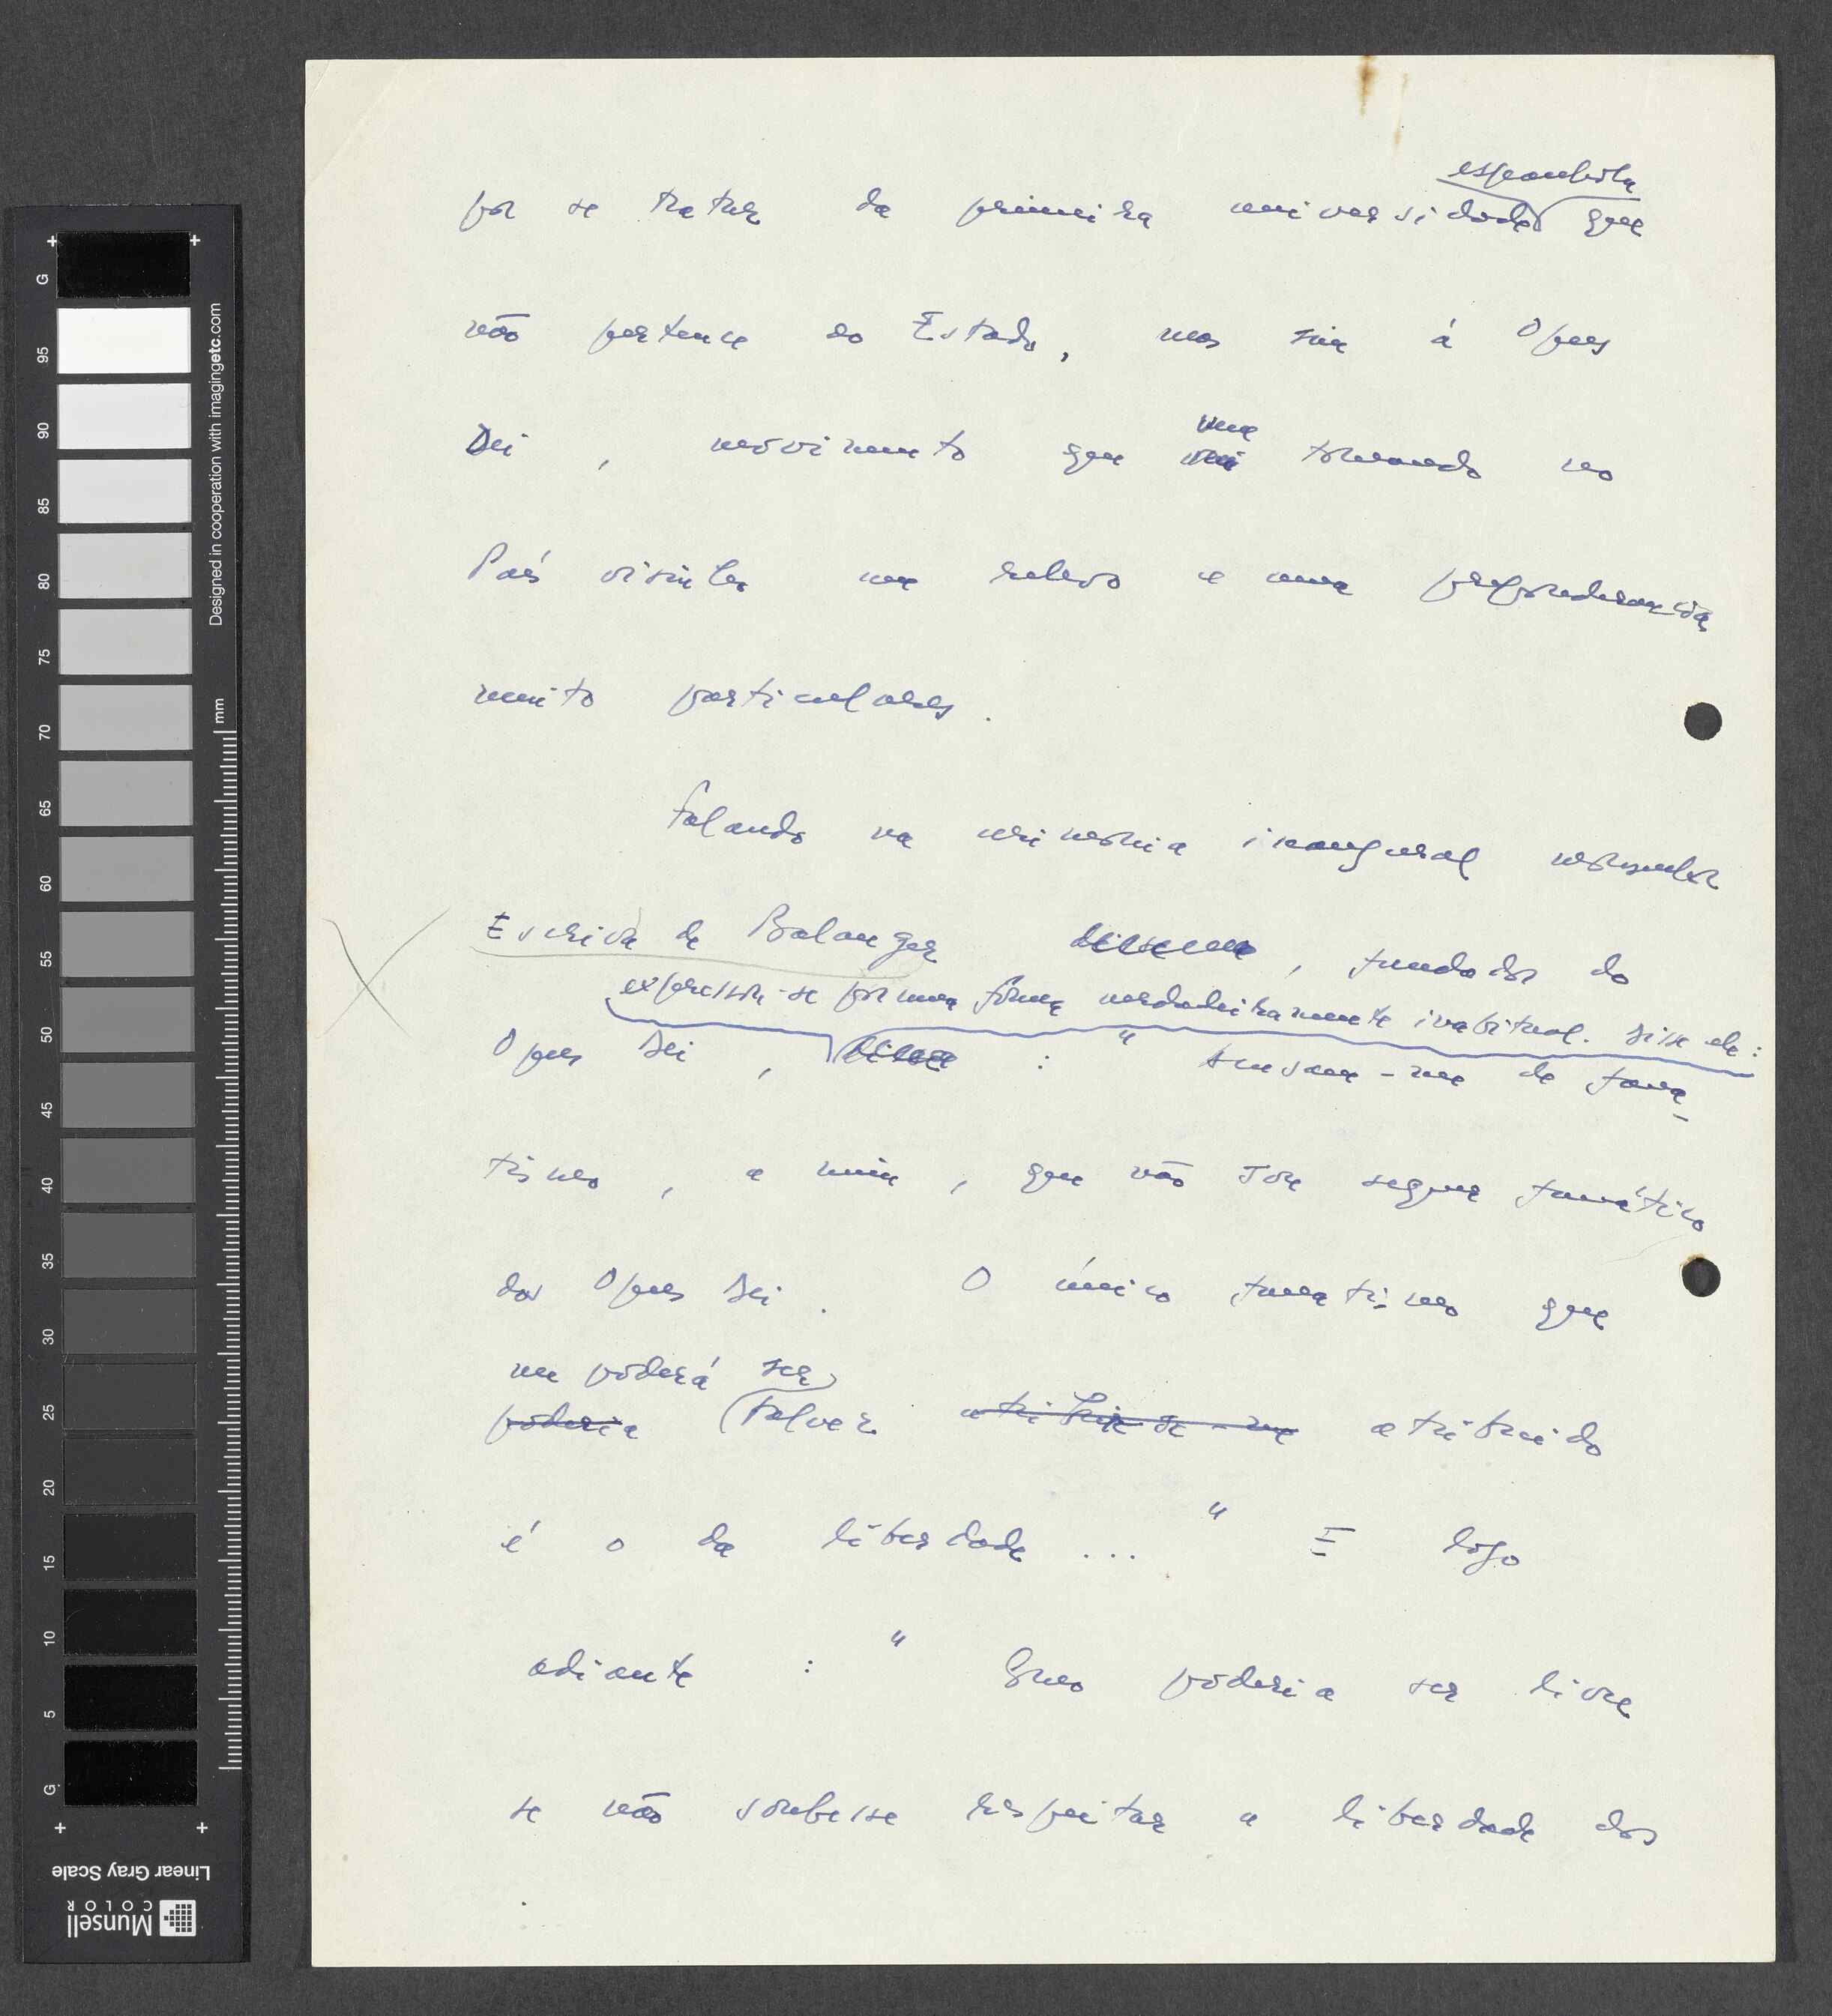 espanhola
por se tratar da primeira universidade que
não pertence ao Estado, mas sim à Opus
vem
Dei, movimento que vai tomando no
País visinho um relevo e uma preponderancia
muito particulares.
Falando na cerimónia inaugural monsenhor
Escrivá de Balanger disse um, fundador do
expressou-se por uma forma verdadeiramente inabitual. Disse ele:
Opus Dei, disse : " Acusam-me de fana-
tismo, a mim, que não sou sequer fanático
do Opus Dei. O único fanatismo que
me poderá ser
poderia talvez atribuir-se-me atribuido
é o da liberdade ..." E logo
adiante : " Como poderia ser livre
se não soubesse respeitar a liberdade dos
G 95 90 85 80 75 70 65 60 55 50 45 40 35 30 25 20 15 10 5 G
Designed in cooperation with imagingetc.com
mm
Linear Gray Scale
Munsell
COLOR